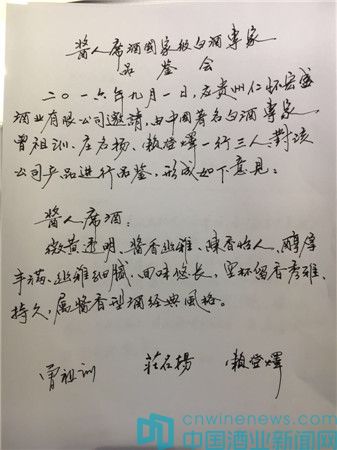 酱人席酒国家级白酒专家
品鉴会
二〇一六年九月一日,应贵州仁怀宏盛
酒业有限公司邀请,由中国著名白酒专家
曾祖训、庄名扬、赖登燡一行三人,对该
公司产品进行品鉴,形成如下意见:
酱人席酒:
微黄透明、酱香幽雅、陈香怡人、醇厚
丰满、幽雅细腻、回味悠长、空杯留香秀雅、
持久,属酱香型酒经典风格。
曾祖训 莊名揚 赖登燡
cnwinenews.com
中国酒业新闻网